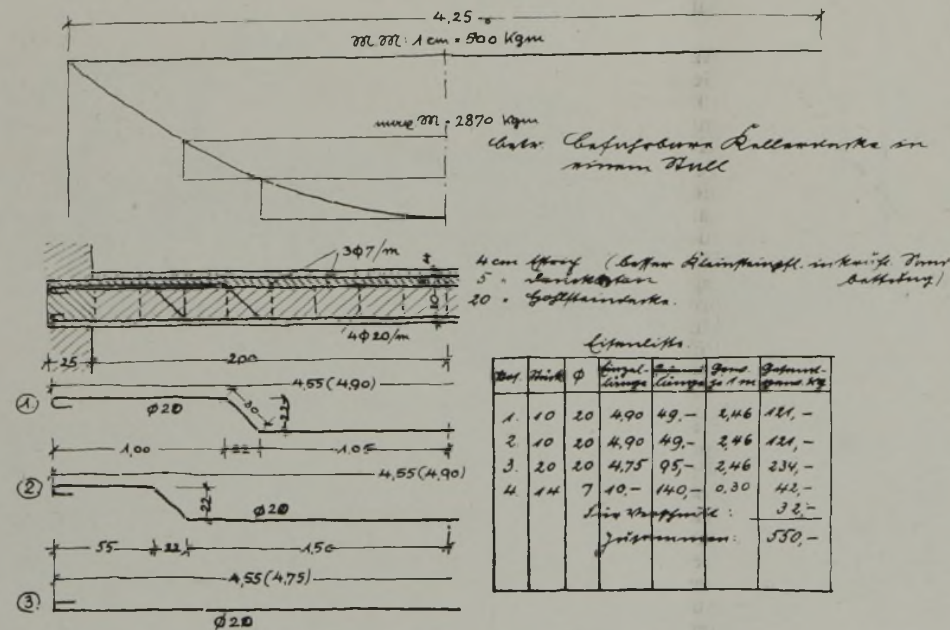 4,25
M M: 1 cm = 500 Kgm
max M = 2870 Kgm
betr. Befahrbare Kellerdecke in
einem Stall
3φ7/m
4 cm Estrich (besser Kleinsteinpfl. in
5 "
20 " Hohlsteindecke.
4
5
20
4φ20/m
25
200
4,55 (4,90)
① φ20 30 22
1,00 22 1,05
4,55 (4,90)
② φ20 22
55 22 1,50
4,55 (4,75)
③ φ20
Eisenliste
Pos. Stück φ Einzel-länge Gesamt-länge Gew. je 1 m Gesamt-gew. Kg
1. 10 20 4,90 49,- 2,46 121,-
2 10 20 4,90 49,- 2,46 121,-
3. 20 20 4,75 95,- 2,46 234,-
4 14 7 10,- 140,- 0,30 42,-
Für Verschnitt: 32,-
Zusammen: 550,-